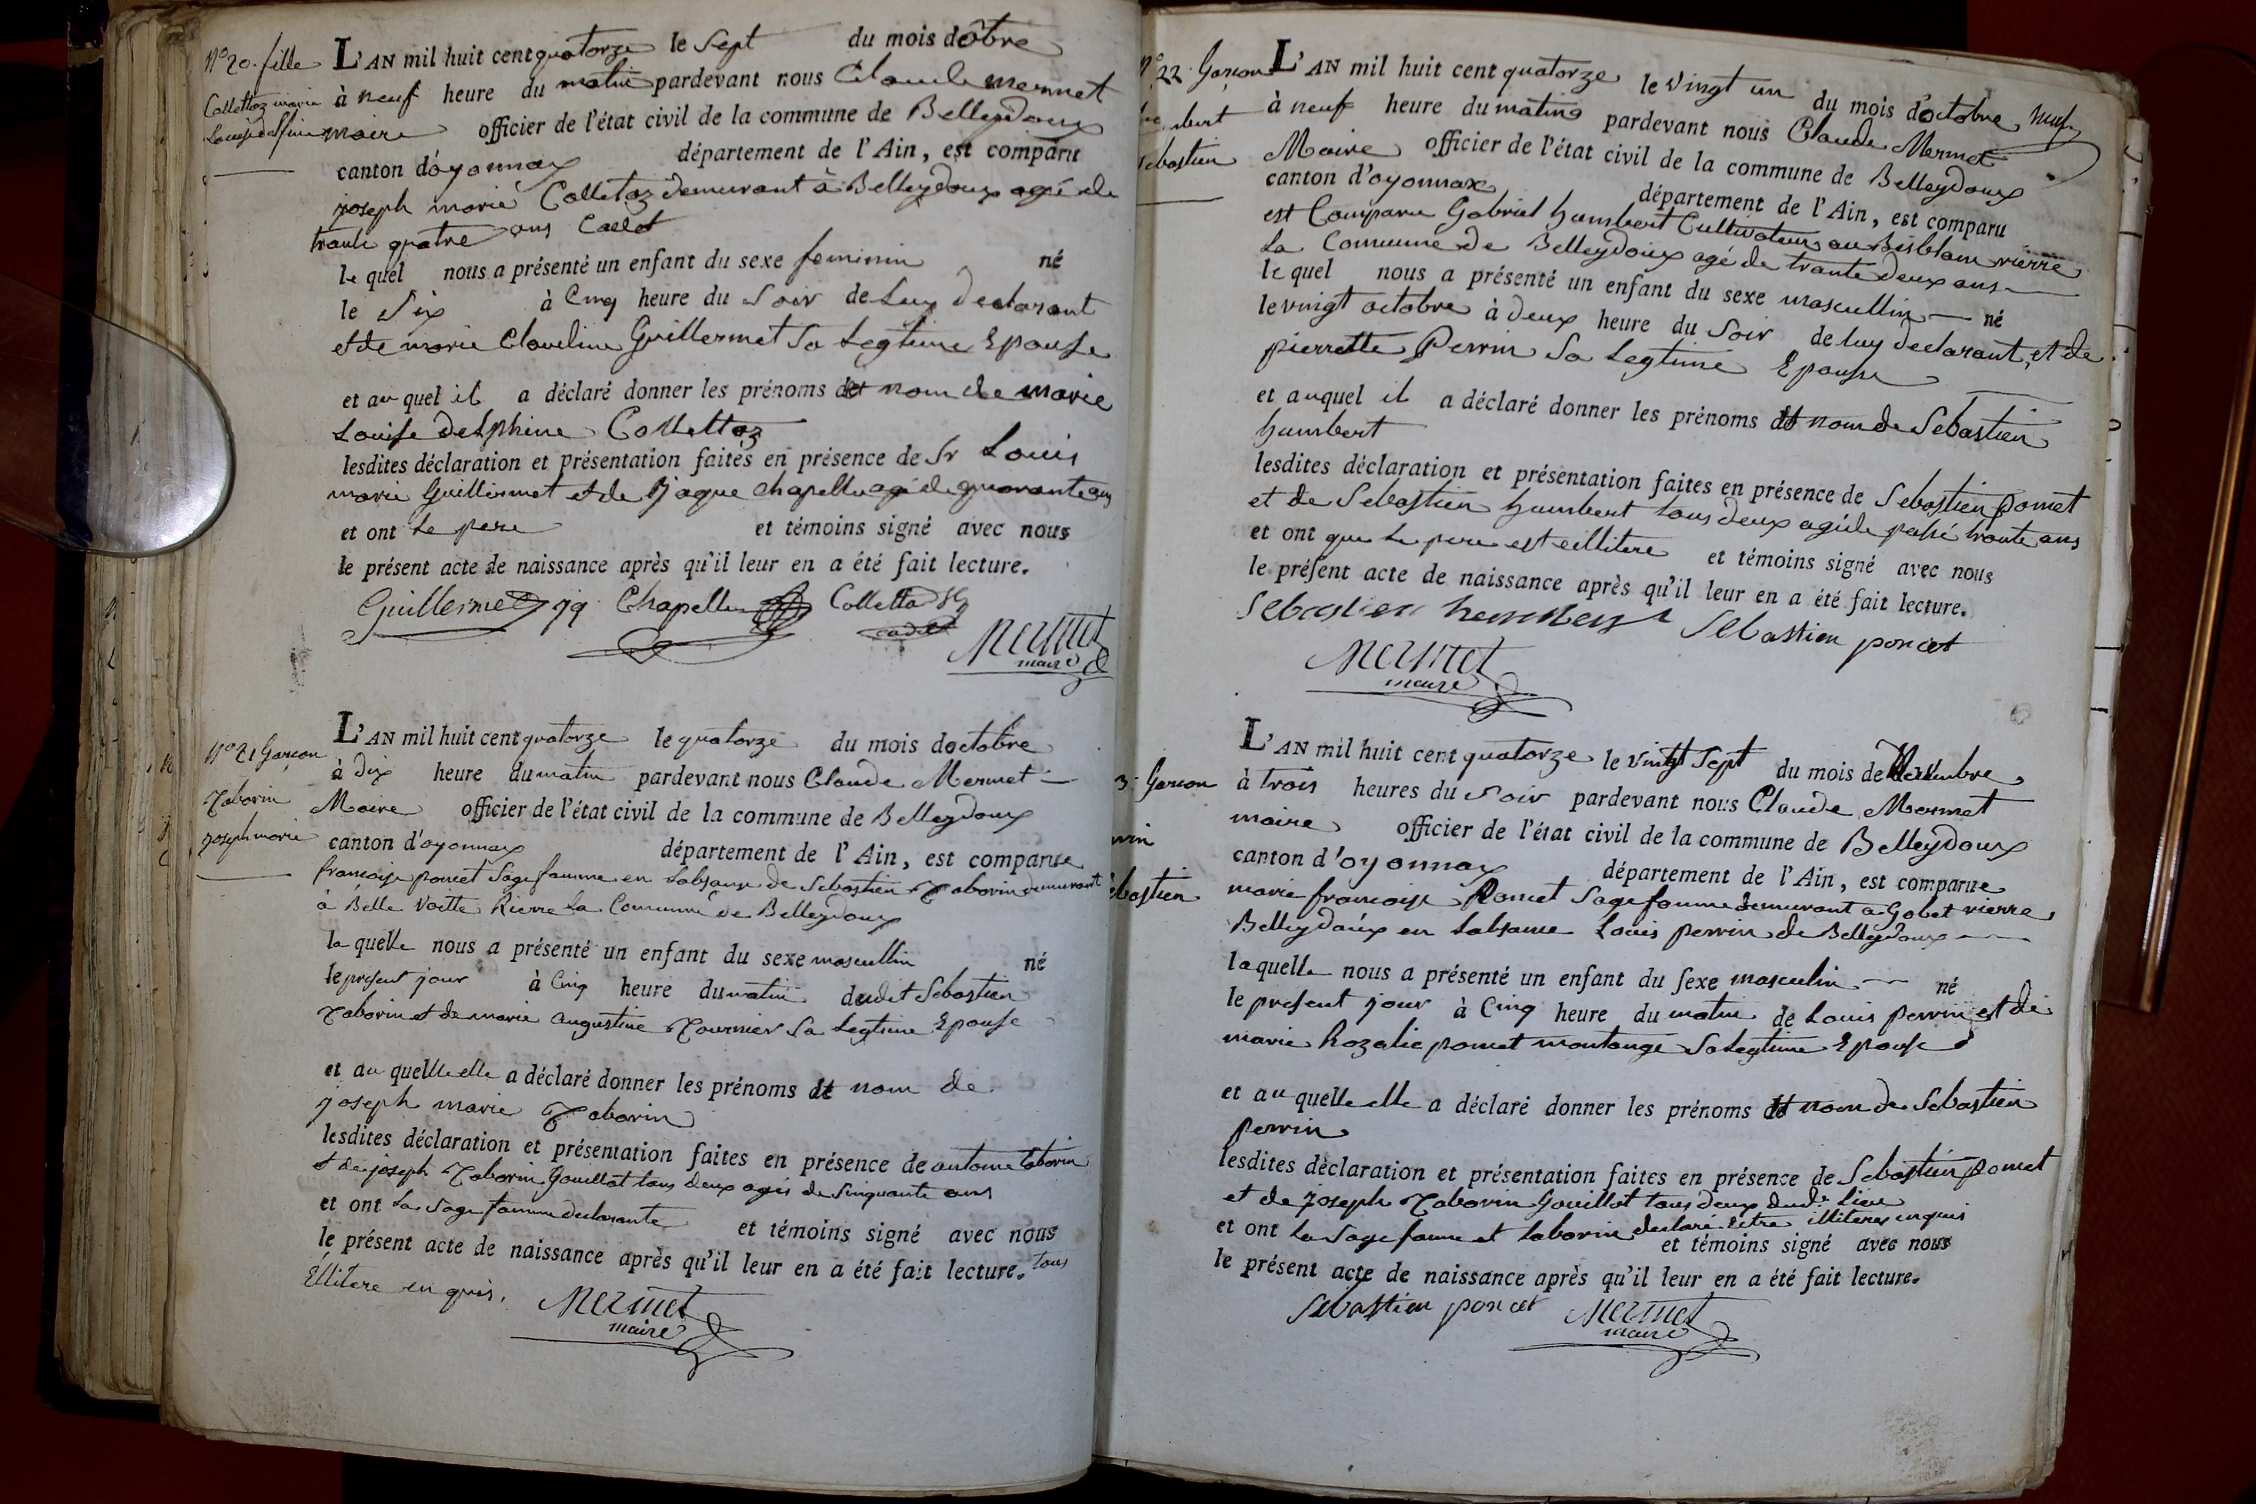 N° 20. fille
Collettaz marie
Louise delfine
L'AN mil huit cent quatorze le Sept du mois d'ôbre
à neuf heure du matin pardevant nous Claude Mermet
maire officier de l'état civil de la commune de Belleydoux
canton d'oyonnax département de l'Ain, est comparu
joseph marie Colletaz demeurant à Belleydoux agé de
trante quatre ans Cadet
le quel nous a présenté un enfant du sexe feminin né
le Six à Cinq heure du Soir de Luy declarant
et de marie Claudine Guillermet Sa Legtime Epouse
et au quel il a déclaré donner les prénoms et nom de marie
Louise delphine Collettaz
lesdites déclaration et présentation faites en présence de Sr Louis
marie Guillermet et de Jaque Chapellu agé de quarante ans
et ont Le pere et témoins signé avec nous
le présent acte de naissance après qu'il leur en a été fait lecture.
Guillermet Chapellu Colletta
cadet
Mermet
maire
N° 21 Garcon
Taborin
joseph marie
L'AN mil huit cent quatorze le quatorze du mois d'octobre
à dix heure du matin pardevant nous Claude Mermet
Maire officier de l'état civil de la commune de Belleydoux
canton d'oyonnax département de l'Ain, est comparue
francoise poncet Sage famme en Labsanse de Sebastien Taborin demeurant
à Belle Voitte Rierre La Commune de Belleydoux
la quelle nous a présenté un enfant du sexe mascullin né
le present jour à Cinq heure du matin dudet Sebastien
Taborin et de marie augustine Tournier Sa Legtime Epouse
et au quelle elle a déclaré donner les prénoms et nom de
joseph marie Taborin
lesdites déclaration et présentation faites en présence de antoine taborin
et de joseph Taborin Gouillot tous deux agés de Sinquante ans
et ont La Sage famme declarante et témoins signé avec nous
le présent acte de naissance après qu'il leur en a été fait lecture. tous
Ellitere en quis.
Mermet
maire
22. Garcon
mbert
ebastien
L'AN mil huit cent quatorze le vingt un du mois d'octobre neuf
à neuf heure du matin pardevant nous Claude Mermet
Maire officier de l'état civil de la commune de Belleydoux
canton d'oyonnax département de l'Ain, est comparu
est Comparu Gabriel humbert Cultivateur au rierre
La Commune de Belleydoux agé de trante deux ans
le quel nous a présenté un enfant du sexe mascullin né
le vingt octobre à deux heure du Soir de luy declarant et de
pierrette Perrin Sa Legtime Epouse
et auquel il a déclaré donner les prénoms et nom de Sebastien
humbert
lesdites déclaration et présentation faites en présence de Sebastien poncet
et de Sebastien humbert tous deux agé de passé trante ans
et ont que Le pere est eillitere et témoins signé avec nous
le présent acte de naissance après qu'il leur en a été fait lecture.
Sebastien humbert Sebastien poncet
Mermet
maire
3. Garcon
rrin
ebastien
L'AN mil huit cent quatorze le vingt Sept du mois de
à trois heures du Soir pardevant nous Claude Mermet
maire officier de l'état civil de la commune de Belleydoux
canton d'oyonnax département de l'Ain, est comparue
marie francoise Poncet Sage famme demeurant a Gobet rierre
Belleydoux en Labsanse Louis perrin de Belleydoux
laquelle nous a présenté un enfant du sexe masculin né
le present jour à Cinq heure du matin de Louis perrin et de
marie Rozalie poncet montange Sa Legtime Epouse
et au quelle elle a déclaré donner les prénoms et nom de Sebastien
perrin
lesdites déclaration et présentation faites en présence de Sebastien poncet
et de joseph Taborin Gouillot tous deux dudt Lieu
et ont La Sage famme et taborin declaré être illiteres enquis
et témoins signé avec nous
le présent acte de naissance après qu'il leur en a été fait lecture.
Sebastien poncet Mermet
maire